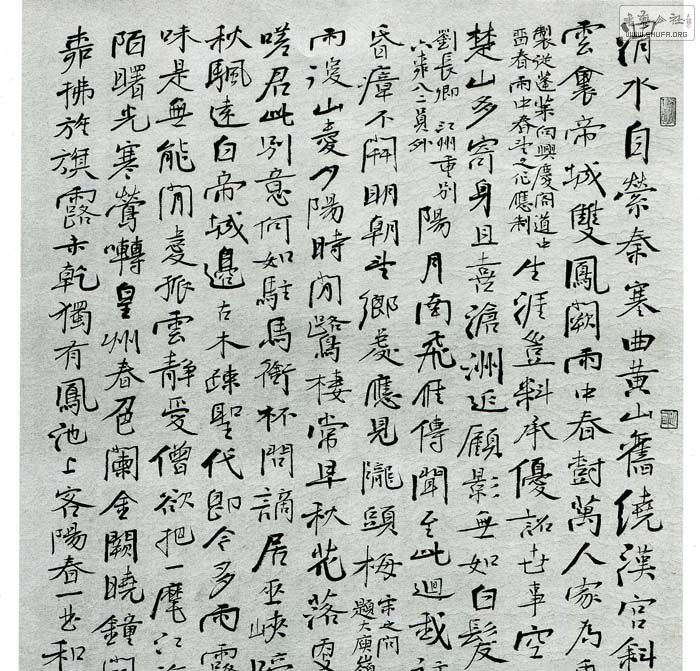 渭水自縈秦塞曲黃山舊繞漢宮斜
雲裏帝城雙鳳闕雨中春樹萬人家為
製從蓬萊向興慶閣道中
留春雨中春望之作應制
生涯豈料承優詔世事空
楚山多寄身且喜滄洲近顧影無如白髮
劉長卿江州重別
六柳八二員外
陽月南飛雁傳聞至此迴我
昏瘴不開明朝望鄉處應見隴頭梅
宋之問
題大庾嶺
雨後山愛夕陽時閒鷺棲常早秋花落更
嗟君此別意何如駐馬銜杯問謫居巫峽啼
秋颿遠白帝城邊古木疎聖代即今多雨露
味是無能閒愛孤雲靜愛僧欲把一麾江
陌曙光寒鶯囀皇州春色闌金闕曉鐘開
花拂旌旗露未乾獨有鳳池上客陽春一曲和
書法公社
WWW.SHUFA.ORG